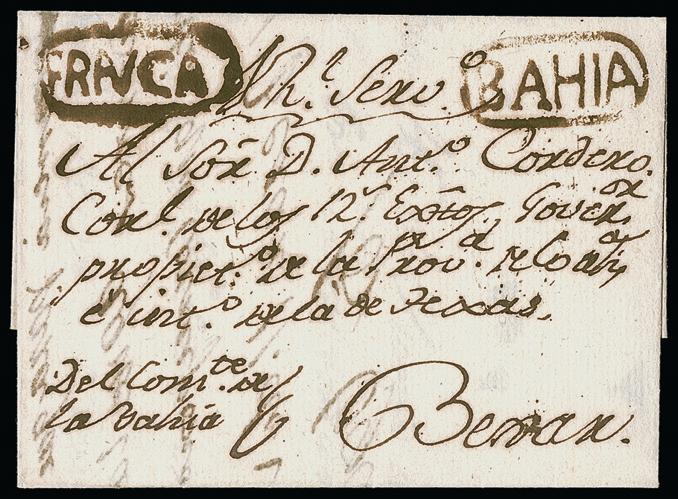 FRANCA
Rl. Servo.
BAHIA
Al Sor. D. Anto. Cordero.
Corl. de los Rs. Extos, Goveror.
propieto. de la Prova. de Coaha.
e into. de la de Texas.
Del Comte. de
la Bahia
Bexar.